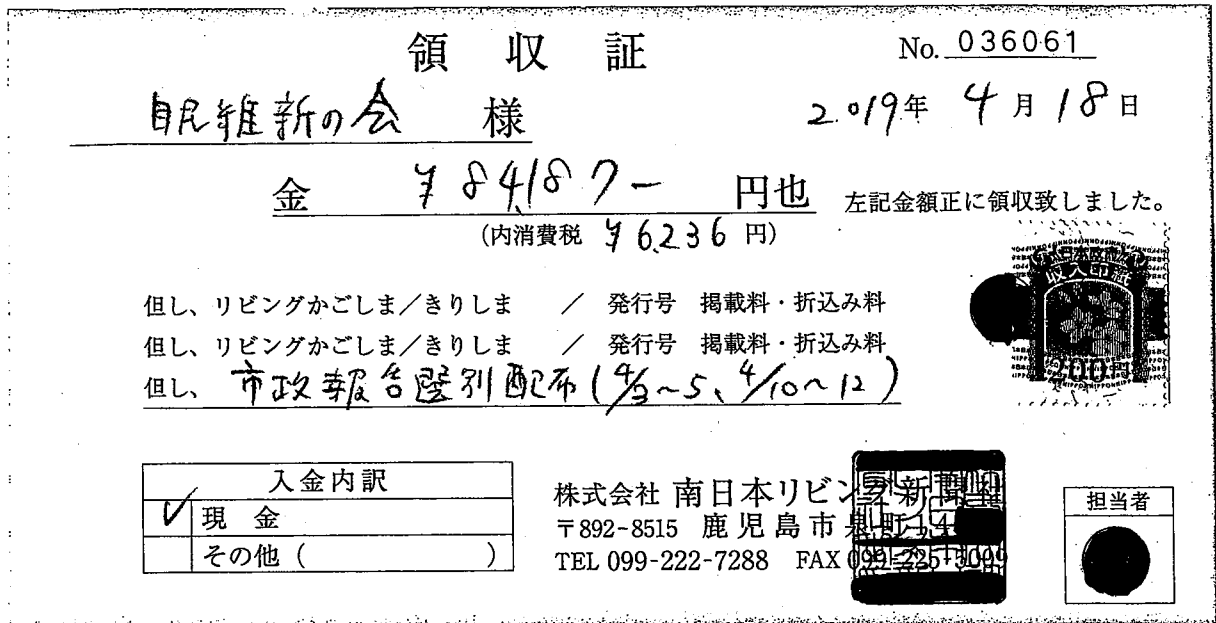 領収証
No. 036061
自民維新の会 様
2019年 4月 18日
金 ¥84,187- 円也
左記金額正に領収致しました。
(内消費税 ¥6,236 円)
但し、リビングかごしま/きりしま / 発行号 掲載料・折込み料
但し、リビングかごしま/きりしま / 発行号 掲載料・折込み料
但し、市政報告選別配布(4/3~5、4/10~12)
日本政府
収入印紙
200円
入金内訳
✓ 現金
その他( )
株式会社 南日本リビング新聞社
〒892-8515 鹿児島市泉町14
TEL 099-222-7288 FAX 099-225-5009
担当者